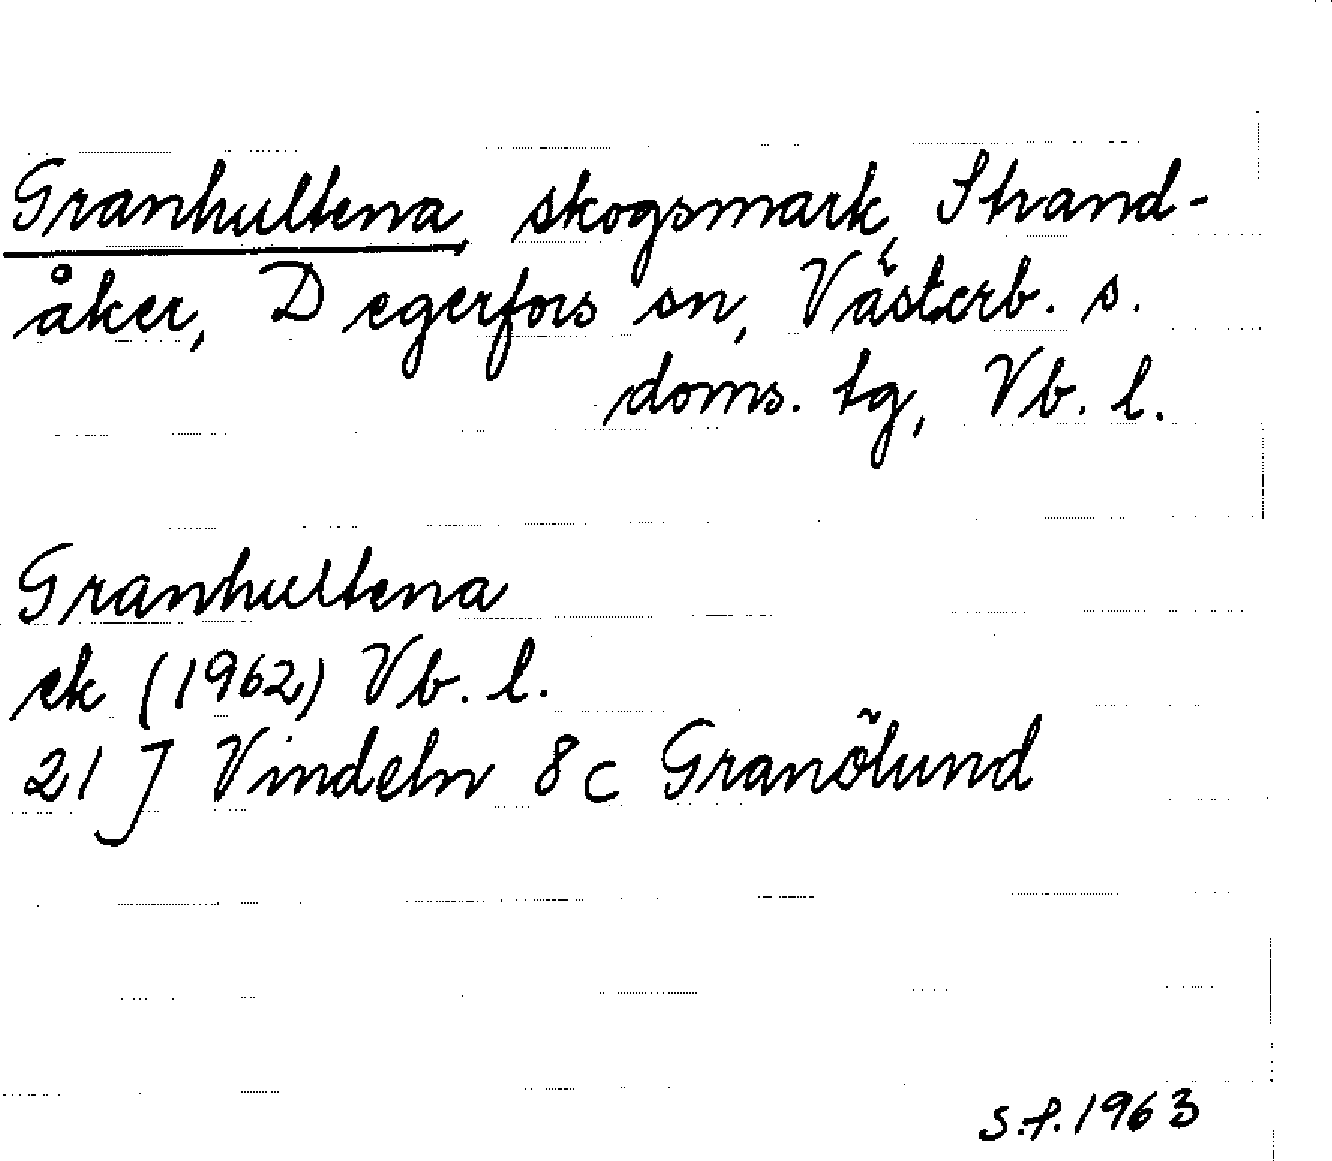 Granhultena skogsmark, Strand-
åker, Degerfors sn, Västerb. s.
doms. tg, Vb. l.
Granhultena
ek (1962) Vb. l.
21 J Vindeln 8 c Granölund
S.f. 1963